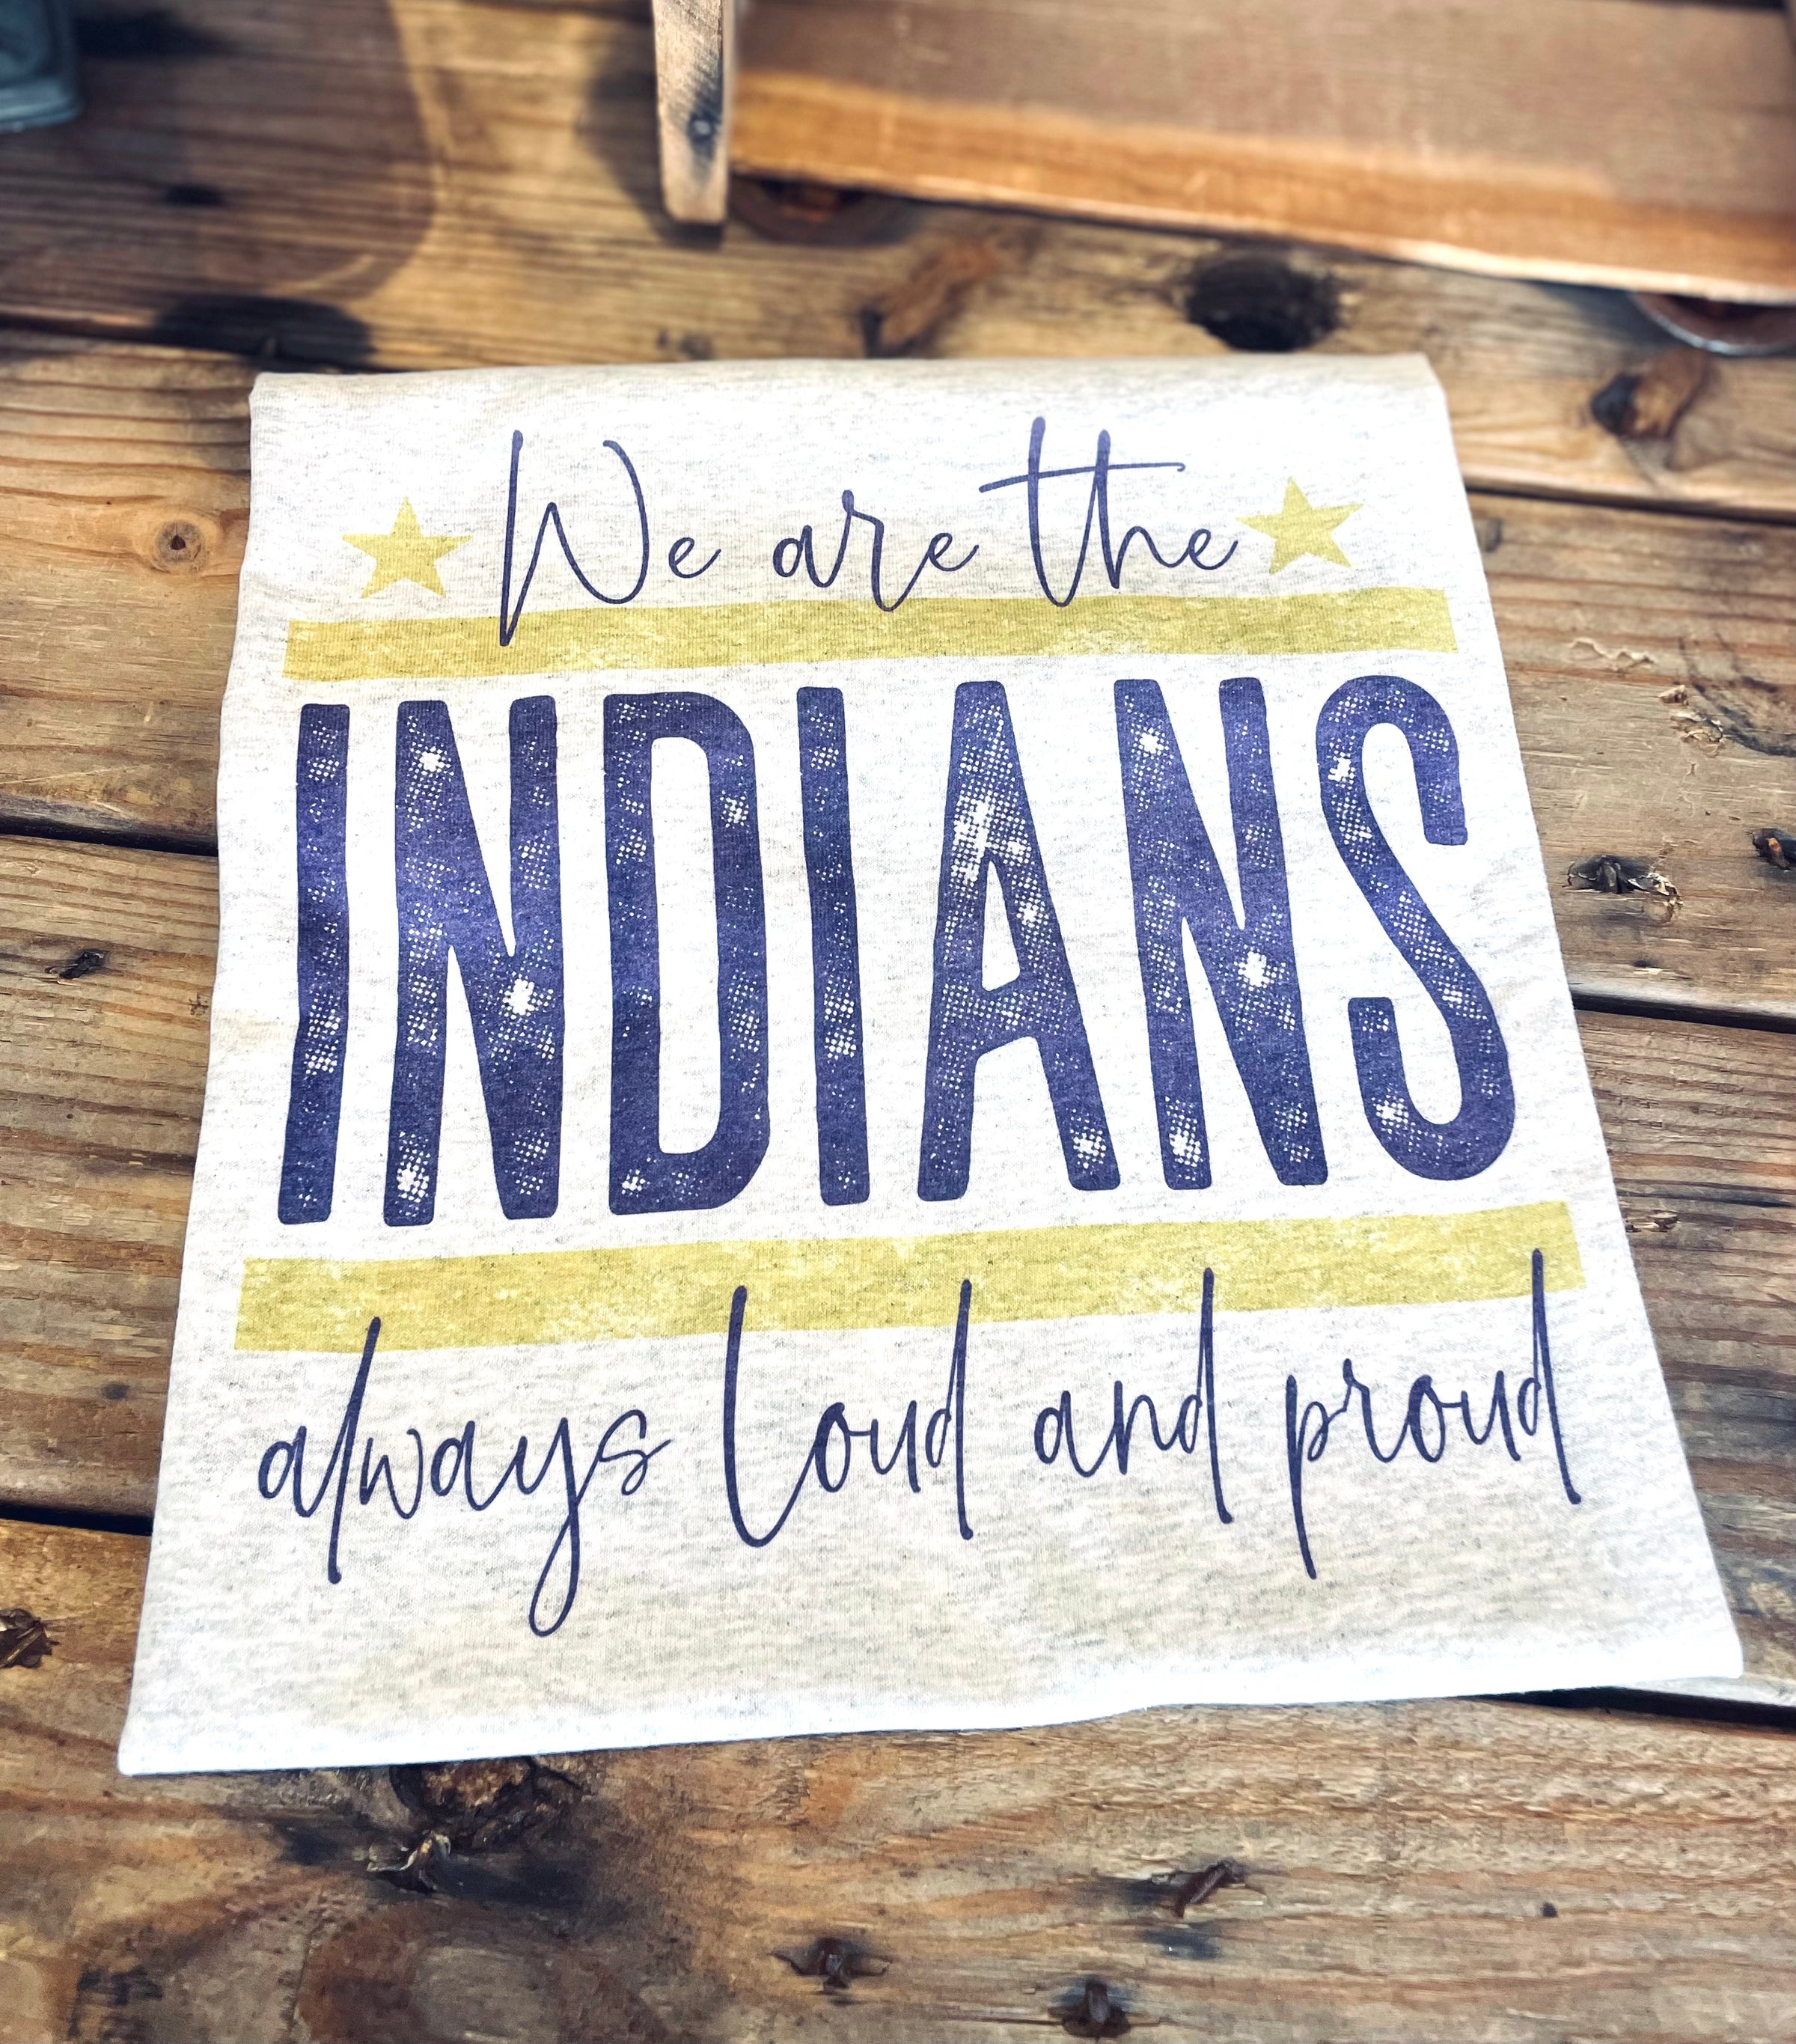 We are the
INDIANS
always loud and proud